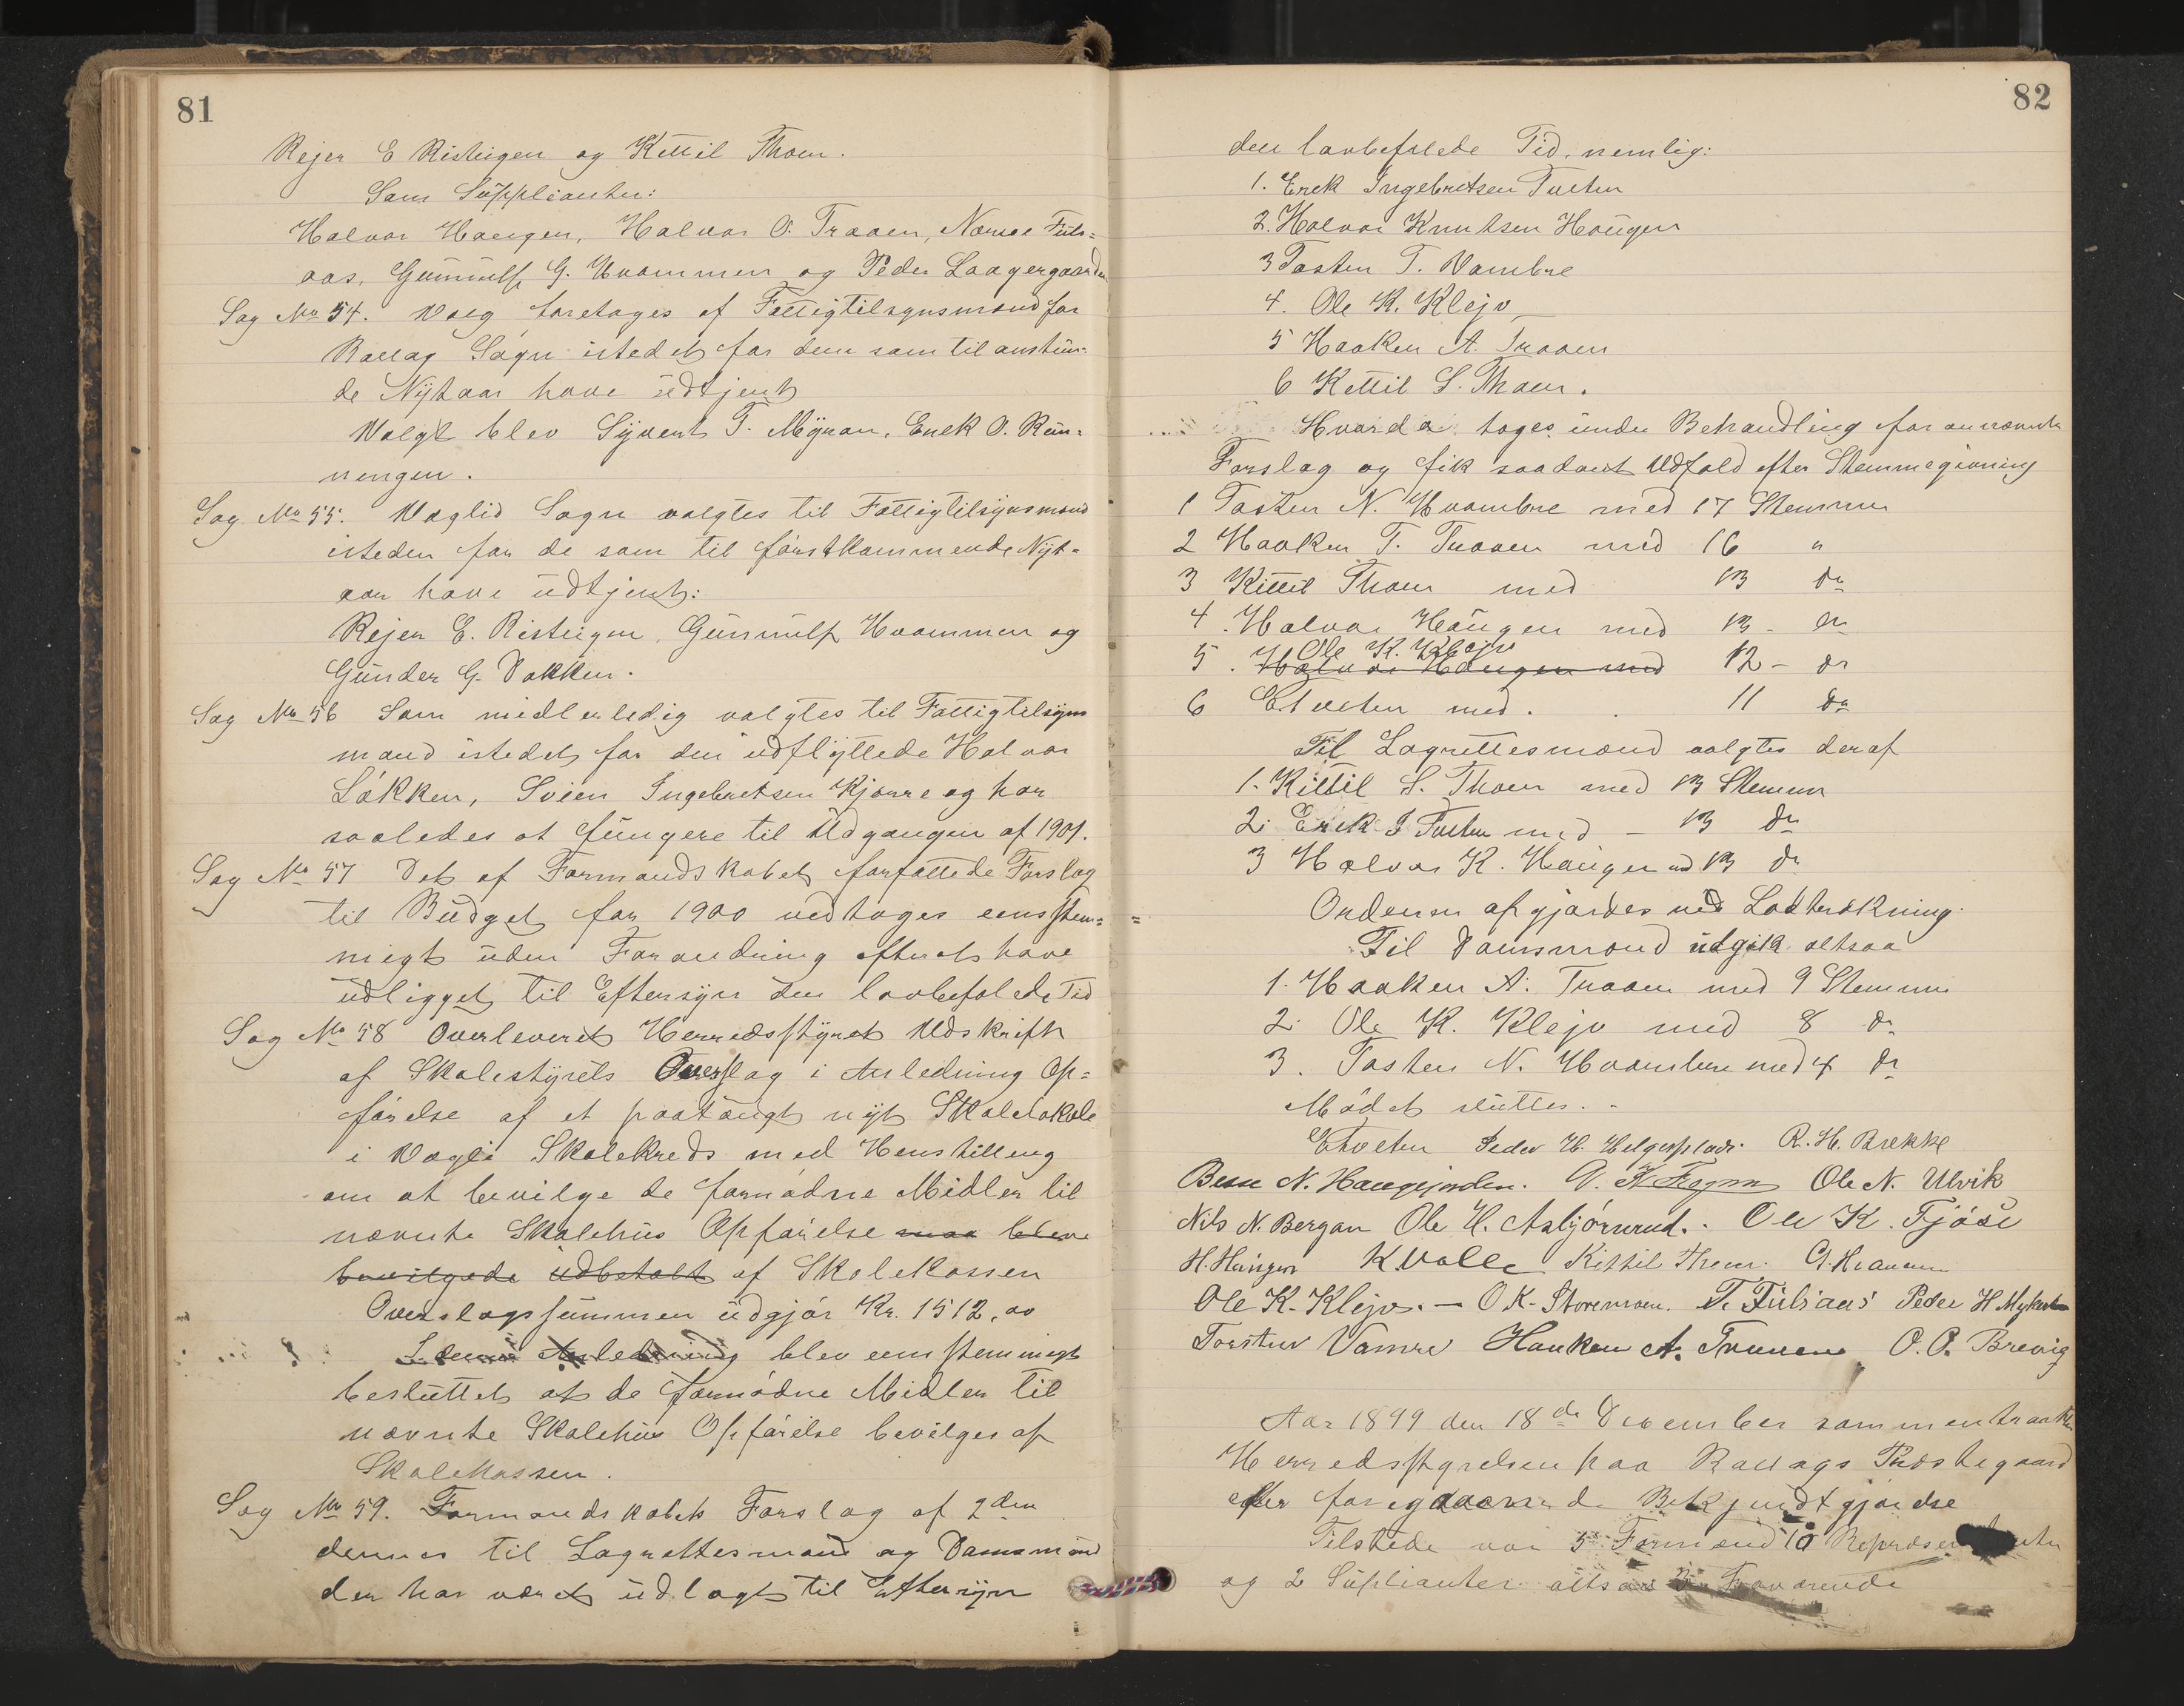 81
Rejer E Risteigen og Kettil Thoen.
Som Süppleanter:
Halvor Haugen, Halvor O. Traaen, Narve Fuls=
aas, Günnülf G. Hvammen og Peder Laagergaarden
Sag No 54. Valg foretages af Fattigtilsynsmænd for
Rollag Sogn istedet for dem som til anstün-
de Nÿtaar have üdtjent
Valgt blev Sÿvert T. Mÿran, Erek O. Rün-
nengen.
Sag No 55. Væglid Sogn valgtes til Fattigtilsÿnsmænd
isteden for de som til förstkommende Nÿt-
aar have üdtjent:
Rejer E. Risteigen, Günnülf Hvammen og
Günder G. Dokken.
Sag No 56 Som midlerledig valgtes til Fattigtilsÿns
mand istedet for den üdflÿttede Halvor
Løkken, Svein Ingebretsen Kjønne og har
saaledes at füngere til Udgangen af 1901.
Sag No 57 Det af Formandskabet forfattede Forslag
til Büdget for 1900 vedtoges eensstem=
migt üden Forandring efterat have
üdligget til Eftersÿn den lovbefalede Tid
Sag No 58 Overleveret Herredsstÿret Udskrift
af Skolestÿrets Overslag i Anledning Op=
førelse af et paatængt nÿt Skolelokale
i Vægli Skolekreds med Henstilling
om at bevilge de fornødne Midler til
nævnte Skolehüs Opførelse maa blive
bevilgede üdbetalt af Skolekassen
Overslagssümmen üdgjør Kr. 1512,00
I denne Anledning blev eensstemmigt
beslüttet at de fornødne Midler til
nævnte Skolehüs Opførelse bevilges af
Skolekassen.
Sag No 59. Formandskabets Forslag af 2den
dennes til Lagrettesmænd og Domsmænd
der har været üdlagt til Eftersÿn
82
den lovbefalede Tid, nemlig:
1. Erek Ingebretsen Tveten
2. Halvor Knutsen Haügen
3 Tosten T. Vambre
4. Ole K. Klejv
5 Haaken A. Traaen
6 Kettil S. Thoen.
Hvorda toges ünder Behandling forannævnte
Forslag og fik saadant Udfald efter Stemmegivning
1 Tosten N. Hvambre med 17 Stemmer
2 Haaken T. Traaen med 16 "
3 Kittil Thoen med 13 do
4. Halvor Haügen med 13 - do
5. Halvor Haugen med Ole K. Klejv 12 - do
6 E Tveten med. 11 do
Til Lagrettesmænd valgtes deraf
1. Kittil S. Thoen med 13 Stemmer
2. Erek I Tveten med - 13 do
3 Halvor K. Haügen med 13 do
Ordenen afgjordes ved Lodtrækning.
Til Domsmænd üdgik altsaa
1. Haaken A. Traaen med 9 Stemmer
2. Ole K. Klejv med 8 do
3. Tosten N. Hvambre med 4 do
Mødet slüttes.
E Tveten Peder H. Helgesplads. R. H. Brekke
N. Haugejorden. Ole N. Ulvik
Nils N. Bergan Ole H. Asbjørnrud. Ole K. Fjøse
H. Haügen K Valle Kittil Thoen. G. Hvammen
Ole K. Klejv. - O K. Storemoen. T. Fülsaas Peder H Mykstu
Torsten Vamre Haaken A. Traaen O. O. Brevig
Aar 1899 den 18de December sammentraadte
Herredsstyrelsen paa Rollags Prestegaard
efter foregaaende Bekjendtgjørelse
Tilstede var 5 Formænd 10 Repræsentanter
og 2 Süpleanter altsaa 3 Fraværende